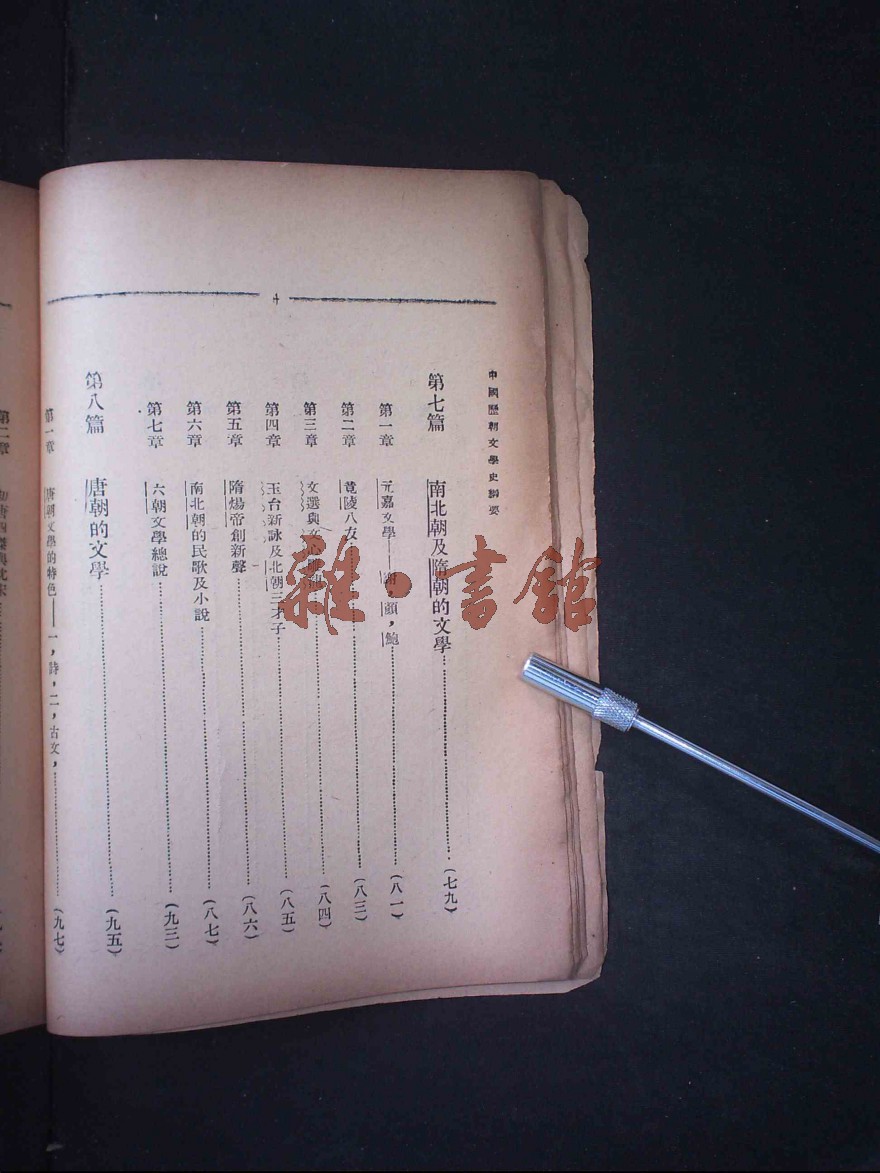 中國歷朝文學史綱要
4
第七篇 南北朝及隋朝的文學……(七九)
第一章 元嘉文學——謝,顏,鮑……(八一)
第二章 竟陵八友……(八三)
第三章 文選與文心雕龍……(八四)
第四章 玉台新詠及北朝三才子……(八五)
第五章 隋煬帝創新聲……(八六)
第六章 南北朝的民歌及小說……(八七)
第七章 六朝文學總說……(九三)
第八篇 唐朝的文學……(九五)
第一章 唐朝文學的特色——一,詩,二,古文,……(九七)
第二章 初唐四傑與沈宋
雜·書館